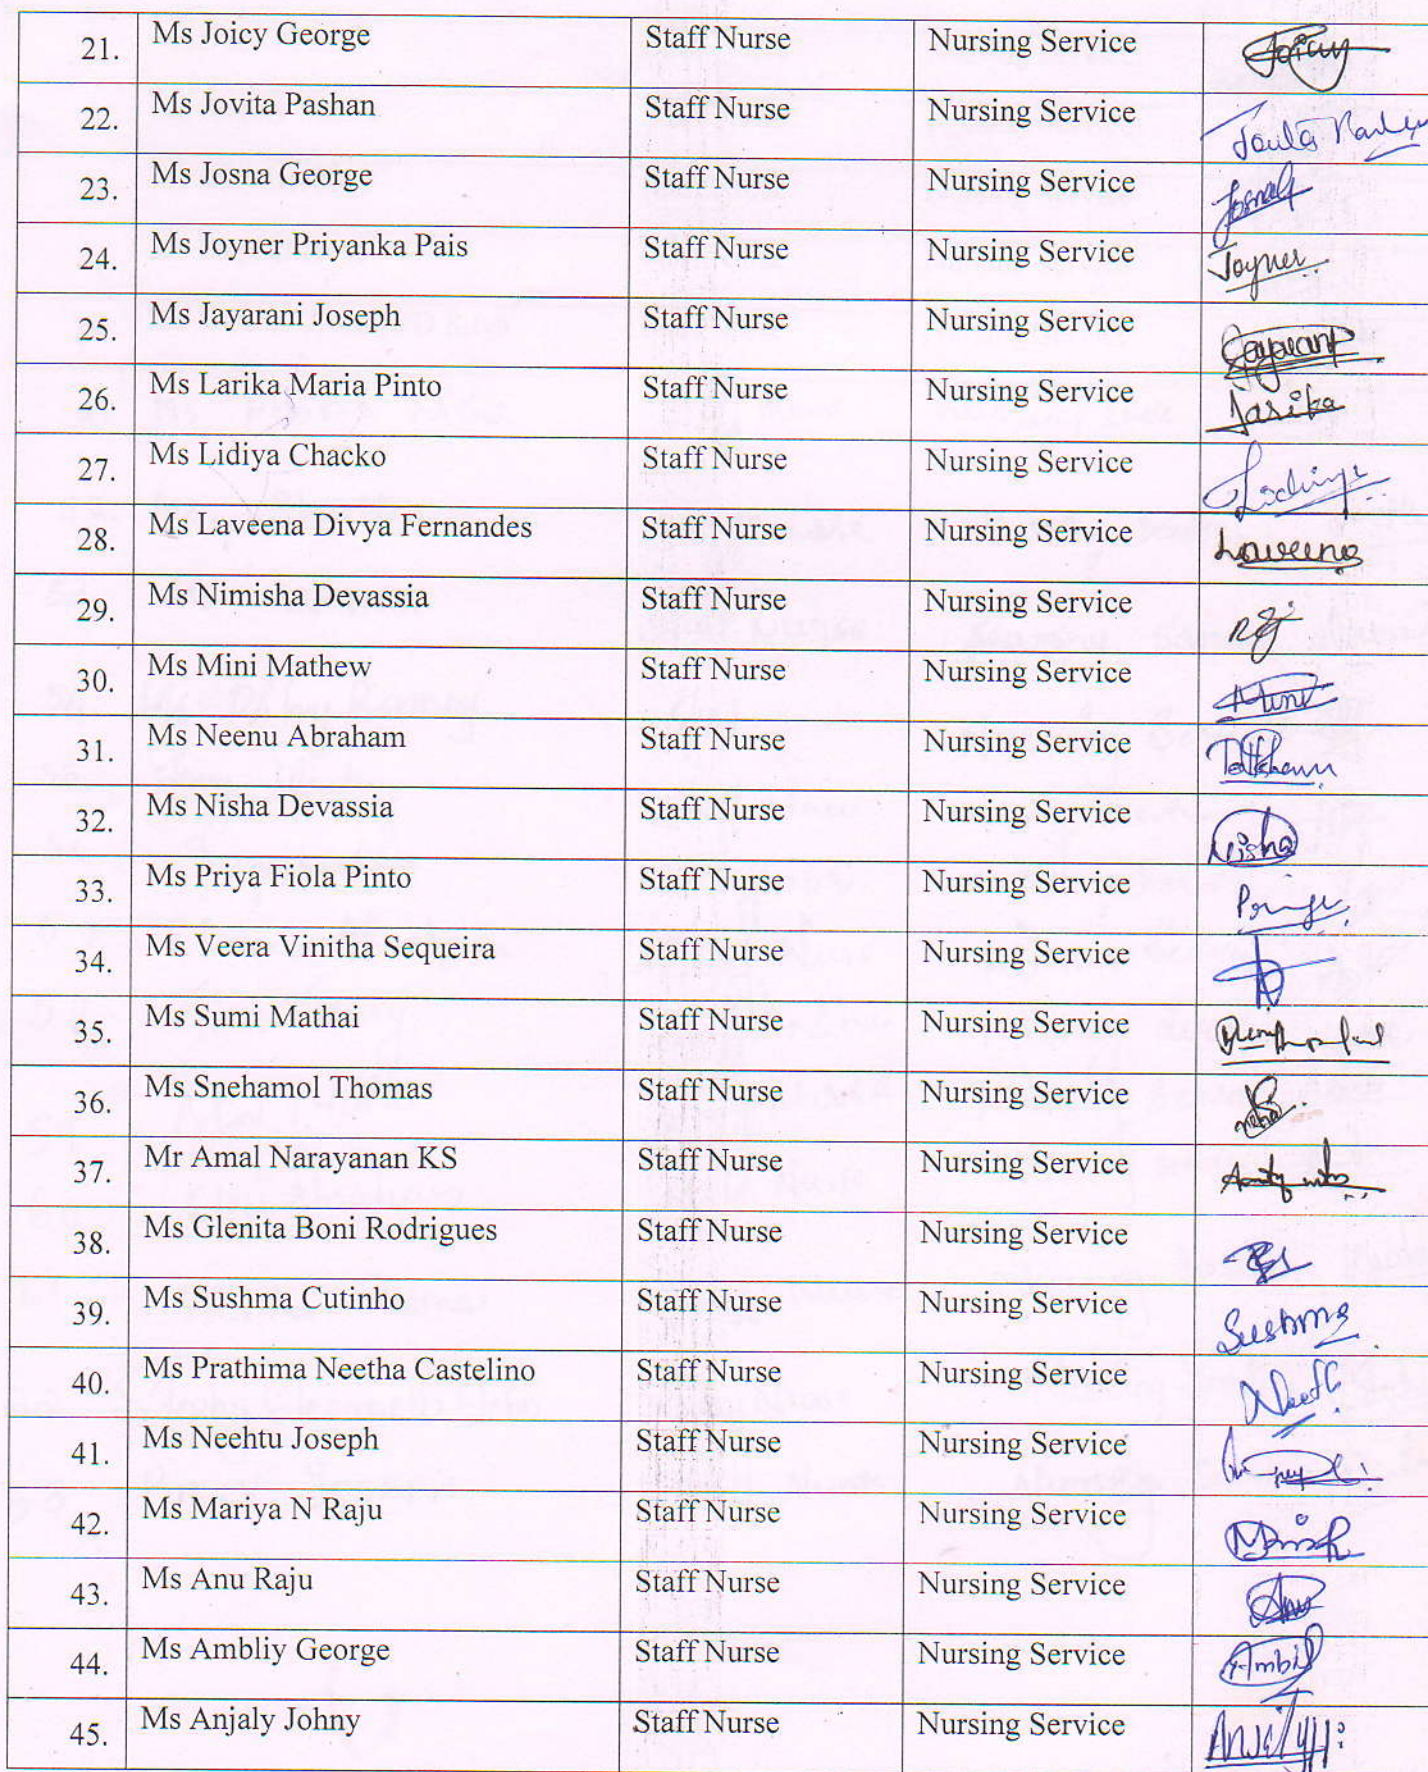 21. Ms Joicy George Staff Nurse Nursing Service Joicy
22. Ms Jovita Pashan Staff Nurse Nursing Service
23. Ms Josna George Staff Nurse Nursing Service
24. Ms Joyner Priyanka Pais Staff Nurse Nursing Service Joyner
25. Ms Jayarani Joseph Staff Nurse Nursing Service
26. Ms Larika Maria Pinto Staff Nurse Nursing Service Larika
27. Ms Lidiya Chacko Staff Nurse Nursing Service
28. Ms Laveena Divya Fernandes Staff Nurse Nursing Service Laveena
29. Ms Nimisha Devassia Staff Nurse Nursing Service
30. Ms Mini Mathew Staff Nurse Nursing Service Mini
31. Ms Neenu Abraham Staff Nurse Nursing Service
32. Ms Nisha Devassia Staff Nurse Nursing Service Nisha
33. Ms Priya Fiola Pinto Staff Nurse Nursing Service
34. Ms Veera Vinitha Sequeira Staff Nurse Nursing Service
35. Ms Sumi Mathai Staff Nurse Nursing Service
36. Ms Snehamol Thomas Staff Nurse Nursing Service
37. Mr Amal Narayanan KS Staff Nurse Nursing Service
38. Ms Glenita Boni Rodrigues Staff Nurse Nursing Service
39. Ms Sushma Cutinho Staff Nurse Nursing Service Sushma
40. Ms Prathima Neetha Castelino Staff Nurse Nursing Service
41. Ms Neehtu Joseph Staff Nurse Nursing Service
42. Ms Mariya N Raju Staff Nurse Nursing Service
43. Ms Anu Raju Staff Nurse Nursing Service Anu
44. Ms Ambliy George Staff Nurse Nursing Service
45. Ms Anjaly Johny Staff Nurse Nursing Service